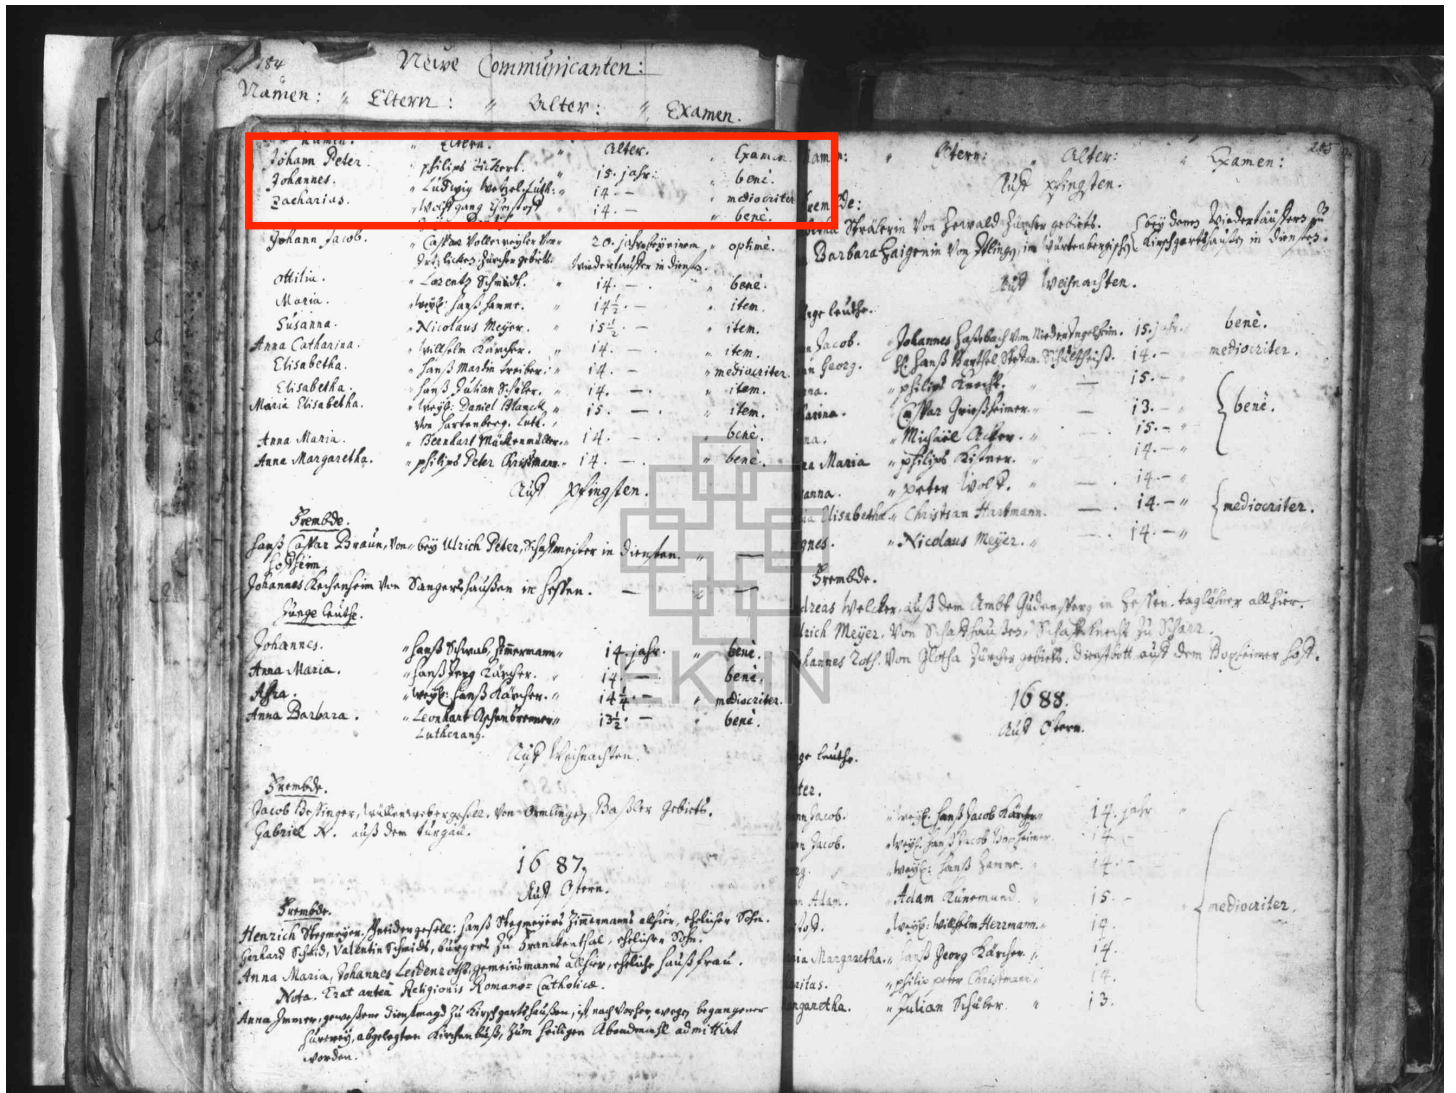 184
Neüe Communicanten:
Namen: " Eltern: " Alter: " Examen.
Namen. " Eltern. " Alter. " Examen
Johann Peter. " philips 15. jahr. " benè.
Johannes. " Ludwig Wetzel, Luth: " 14. — " mediocriter
Zacharias. " Wolffgang 14. — " benè.
Johann Jacob. " Caspar Vollenweyler Von 20. jahr, bey einem " optimè.
Zürcher gebiets. Wiedertäuffer in diensten.
Ottilia. " Lorentz Schmidt. " 14. — " benè.
Maria. " weyl: Hanß Hamme. " 14½. — " item.
Susanna. " Nicolaus Meyer. " 15½. — " item.
Anna Catharina. " Willhelm Kärcher. " 14. — " item.
Elisabetha. " Hanß Martin Treiber. " 14. — " mediocriter.
Elisabetha. " Hanß Julian Schüber. " 14. — " item.
Maria Elisabetha. " weyl: Daniel Blanck, " 15. — " item.
von Hartenberg. Luth.
Anna Maria. " Bernhart Mückenmüller. " 14. — " benè.
Anna Margaretha. " philips Peter Christmann. " 14. — " benè.
Auff pfingsten.
Frembde.
Hanß Caspar Braun, von bey Ulrich Peter, in diensten. " —
Johannes von Sangershaußen in Hessen. — " —
Junge leuthe.
Johannes. " Hanß Schwab, Zimmermann " 14. jahr. " benè.
Anna Maria. " Hanß Jerg Kärcher. " 14. — benè.
Afra. " weyl: Hanß Kärcher. " 14¼. — " mediocriter.
Anna Barbara. " Leonhart Aschenbrenner " 13½. — " benè.
Lutheranus.
Auff Weihnachten.
Frembde.
Jacob Bossinger, wüllenwebergesell. von Ormlingen, Baßler Gebiets.
Gabriel N. auß dem Turgau.
1687.
Auff Ostern.
Frembde.
Henrich Stegmeyer, Hanß Stegmeyers Zimmermanns allhier, ehelicher Sohn.
Gerhard Schmid, Valentin Schmids, bürgers zu Franckenthal, ehelicher Sohn.
Anna Maria, Johannes Leidenroths, gemeinsmanns allhier, eheliche haußfrau.
Nota. Erat antea Religionis Romano-Catholicæ.
Anna Immer, geweßene dienstmagd zu Kirschgartshaußen, ist nach vorher wegen begangener
hurerey, abgelegten Kirchenbuß, zum heiligen Abendmahl admittirt
worden.
285
amen: " Eltern: " Alter: " Examen:
Auff pfingsten.
rembde:
Strälerin von Zürcher gebiets.
Barbara Haigenin von im Würtenbergischen bey denen Wiedertäuffern zu Kirschgartshaußen in diensten.
Auff Weihnachten.
nge leuthe.
n Jacob. " Johannes Haßbach von NiederIngelheim. 15. jahr. benè.
n Georg. Hanß Barthel Schultheiß. 14. — mediocriter.
na. " philips Knecht. — 15. — "
arina. Caspar Grießheimer. — 13. — " benè.
na. " Michaël Acker. " 15. — "
na Maria " philips Kißner. 14. — "
anna. " peter Wolf. — 14. — "
ia Elisabetha. " Christian Hartmann. — 14. — " mediocriter.
gnes. " Nicolaus Meÿer. " — 14. — "
Frembde.
dreas Welcker, auß dem Ambt Gudensperg in Hessen. taglöhner allhier.
lrich Meyer, von Schaffhaußen, Schaffknecht zu Scharr.
hannes Roth. von Zürcher gebiets, dienstbott auff dem Hoff.
1688.
Auff Ostern.
nge leuthe.
eter.
nn Jacob. " weyl: Hanß Jacob Kärcher 14. jahr "
nn Jacob. " weyl: Hanß Jacob 14. —
rg. " weyl: Hanß Hamme. " 14. —
n Adam. " Adam Künemund. " 15. — " mediocriter.
" weyl: Willhelm Herrmann. " 14.
ria Margaretha. " Hanß Georg Kärcher. " 14.
ritas. " philips peter Christmann. " 14.
rgaretha. " Julian Schüber. " 13.
EKHN